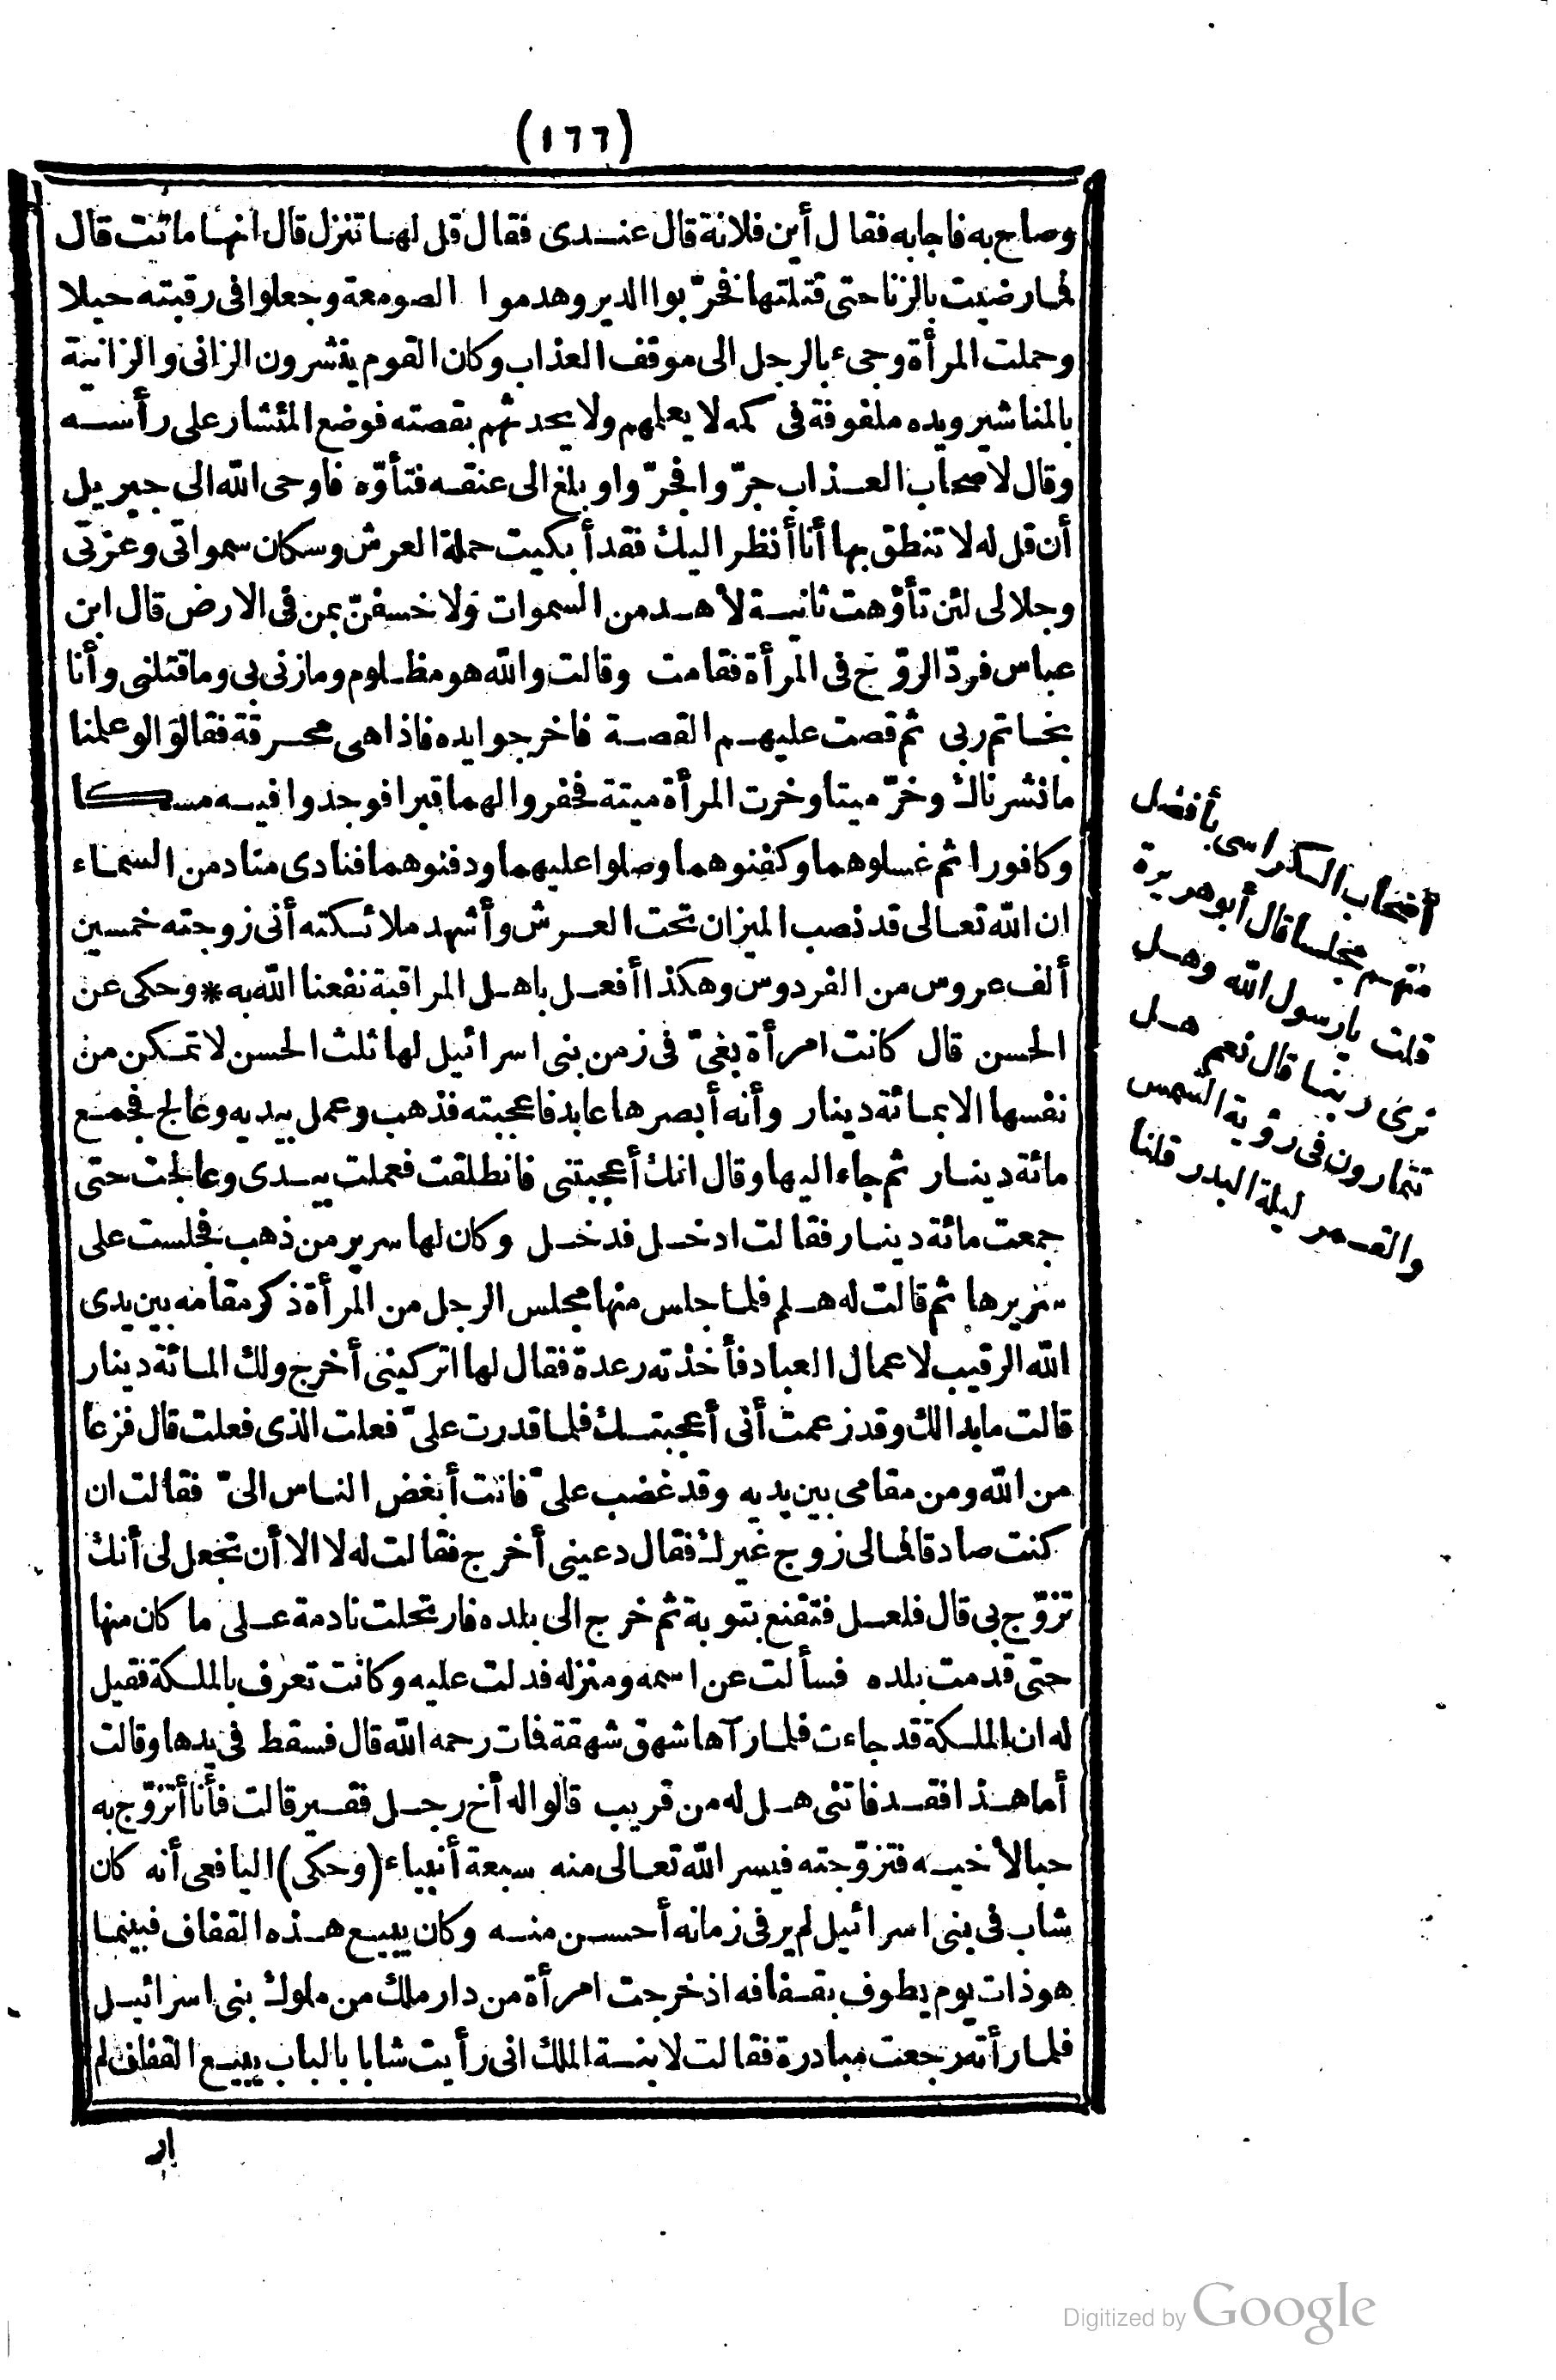 (١٦٦)
وصاح به فاجابه فقال أين فلانة قال عندى فقال قل لها تنزل قال انها ماتت قال
فما رضيت بالزنا حتى قتلتها فخرّبوا الدير وهدموا الصومعة وجعلوا فى رقبته حبلا
وحملت المرأة وجىء بالرجل الى موقف العذاب وكان القوم ينشرون الزانى والزانية
بالمناشير ويده ملفوفة فى كمه لا يعلمهم ولا يحدثهم بقصته فوضع المنشار على رأسه
وقال لاصحاب العذاب جرّوا فجرّوا وبلغ الى عنقه فتأوّه فاوحى الله الى جبريل
أن قل له لا تنطق بها أنا أنظر اليك فقد أبكيت حملة العرش وسكان سمواتى وعزتى
وجلالى لئن تأوّهت ثانية لأهدمن السموات ولا خسفنّ بمن فى الارض قال ابن
عباس فردّ الروّح فى المرأة فقامت وقالت والله هو مظلوم وما زنى بى وما قتلنى وأنا
بخاتم ربى ثم قصت عليهم القصة فاخرجوا يده فاذا هى محرقة فقالوا لو علمنا
ما نشرناك وخرّ ميتا وخرت المرأة ميتة فحفروا لهما قبرا فوجدوا فيه مسكا
وكافورا ثم غسلوهما وكفنوهما وصلوا عليهما ودفنوهما فنادى مناد من السماء
ان الله تعالى قد نصب الميزان تحت العرش وأشهد ملائكته أنى زوجته خمسين
ألف عروس من الفردوس وهكذا أفعل باهل المراقبة نفعنا الله به * وحكى عن
الحسن قال كانت امرأة بغىّ فى زمن بنى اسرائيل لها ثلث الحسن لا تمكن من
نفسها الا بمائة دينار وأنه أبصرها عابد فاعجبته فذهب وعمل بيديه وعالج فجمع
مائة دينار ثم جاء اليها وقال انك أعجبتنى فانطلقت فعملت بيدى وعالجت حتى
جمعت مائة دينار فقالت ادخل فدخل وكان لها سرير من ذهب فجلست على
سريرها ثم قالت له هلم فلما جلس منها مجلس الرجل من المرأة ذكر مقامه بين يدى
الله الرقيب لاعمال العباد فأخذته رعدة فقال لها اتركينى أخرج ولك المائة دينار
قالت ما بدا لك وقد زعمت أنى أعجبتك فلما قدرت علىّ فعلت الذى فعلت قال فزعا
من الله ومن مقامى بين يديه وقد غضب علىّ فانت أبغض الناس الىّ فقالت ان
كنت صادقا فمالى زوج غيرك فقال دعينى أخرج فقالت له لا الا أن تجعل لى أنك
تزوّج بى قال فلعل فتقنع بتوبة ثم خرج الى بلده فارتحلت نادمة على ما كان منها
حتى قدمت بلده فسألت عن اسمه ومنزله فدلت عليه وكانت تعرف بالملكة فقيل
له ان الملكة قد جاءت فلما رآها شهق شهقة فمات رحمه الله قال فسقط فى يدها وقالت
أما هذا فقد فاتنى هل له من قريب قالوا له أخ رجل فقير قالت فأنا أتزوّج به
حبا لأخيه فتزوّجته فيسر الله تعالى منه سبعة أنبياء (وحكى) اليافعى أنه كان
شاب فى بنى اسرائيل لم ير فى زمانه أحسن منه وكان يبيع هذه القفاف فبينما
هو ذات يوم يطوف بقفافه اذ خرجت امرأة من دار ملك من ملوك بنى اسرائيل
فلما رأته رجعت مبادرة فقالت لابنة الملك انى رأيت شابا بالباب يبيع القفاف لم
ار
أصحاب الكراسى بأفضل
منهم مجلسا قال أبو هريرة
قلت يا رسول الله وهل
نرى ربنا قال نعم هل
تتمارون فى رؤية الشمس
والقمر ليلة البدر قلنا
Digitized by Google